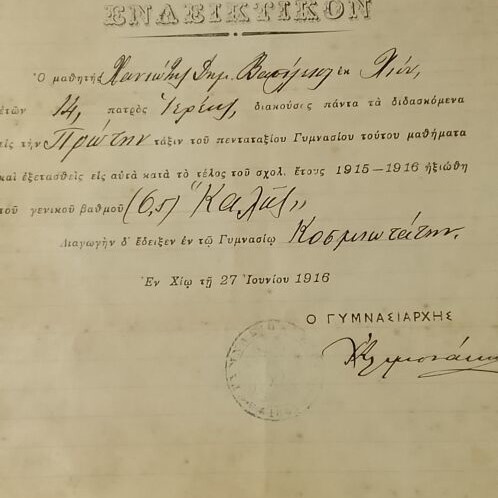 ΕΝΔΕΙΚΤΙΚΟΝ
Ὁ μαθητὴς Χανιώτης Δημ. Βασίλειος ἐκ Χίου,
ἐτῶν 14, πατρὸς Ἱερέως, διακούσας πάντα τὰ διδασκόμενα
εἰς τὴν Πρώτην τάξιν τοῦ πενταταξίου Γυμνασίου τούτου μαθήματα
καὶ ἐξετασθεὶς εἰς αὐτὰ κατὰ τὸ τέλος τοῦ σχολ. ἔτους 1915-1916 ἠξιώθη
τοῦ γενικοῦ βαθμοῦ (6,5) "Καλῶς"
Διαγωγὴν δ' ἔδειξεν ἐν τῷ Γυμνασίῳ Κοσμιωτάτην.
Ἐν Χίῳ τῇ 27 Ἰουνίου 1916
Ο ΓΥΜΝΑΣΙΑΡΧΗΣ